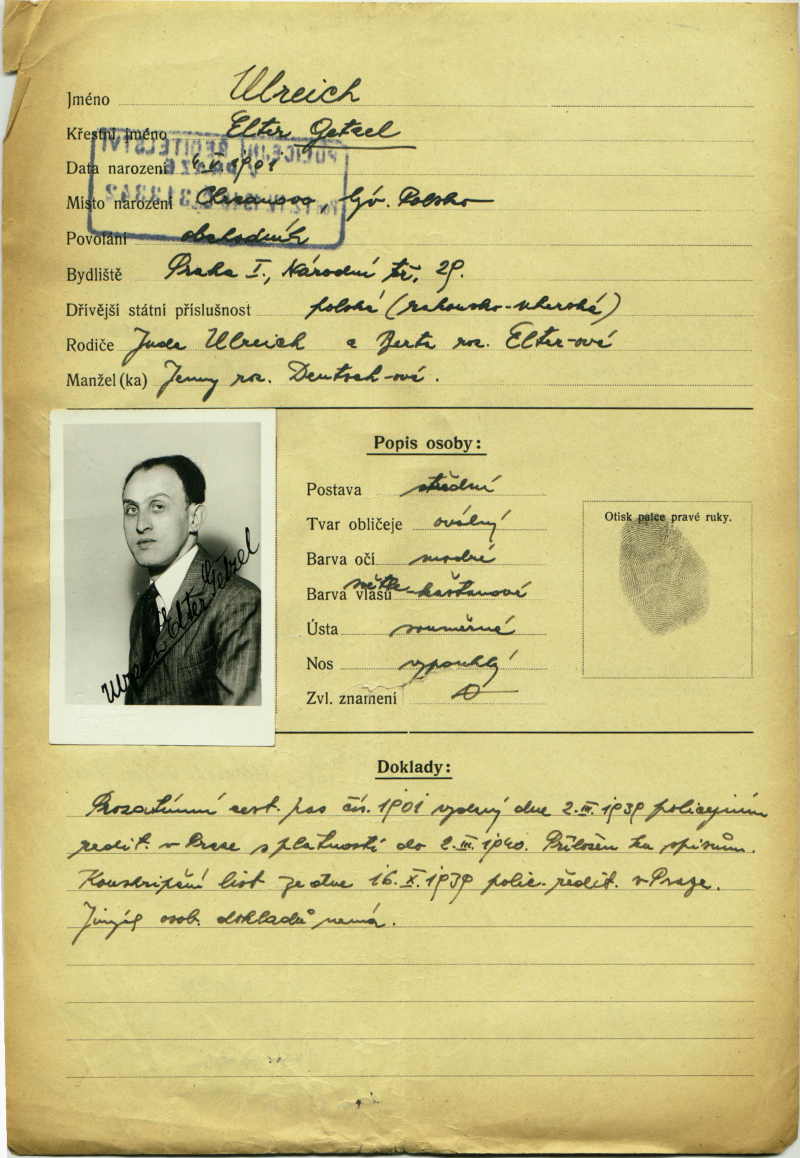 Jméno Ulreich
Křestní jméno Elter Getzel
Data narození 1901
Místo narození Chrzanow, Polsko
Povolání obchodník
Bydliště Praha I., Národní tř. 29.
Dřívější státní příslušnost polská (rakousko-uherská)
Rodiče Juda Ulreich a Berta roz. Elter-ová
Manžel(ka) Jenny roz. Deutsch-ová.
POLICEJNÍ ŘEDITELSTVÍ
V PRAZE
Popis osoby:
Postava střední
Tvar obličeje oválný
Barva očí modré
Barva vlasů světle-kaštanové
Ústa souměrné
Nos vypouklý
Zvl. znamení
Otisk palce pravé ruky.
Ulreich Elter Getzel
Doklady:
Prozatímní cest. pas čís. 1901 vydaný dne 2.III.1939 policejním
ředit. v Praze s platností do 2.III.1940. Přiložen ku spisům.
Konskripční list ze dne 16.X.1939 polic. ředit. v Praze.
Jiných osob. dokladů nemá.